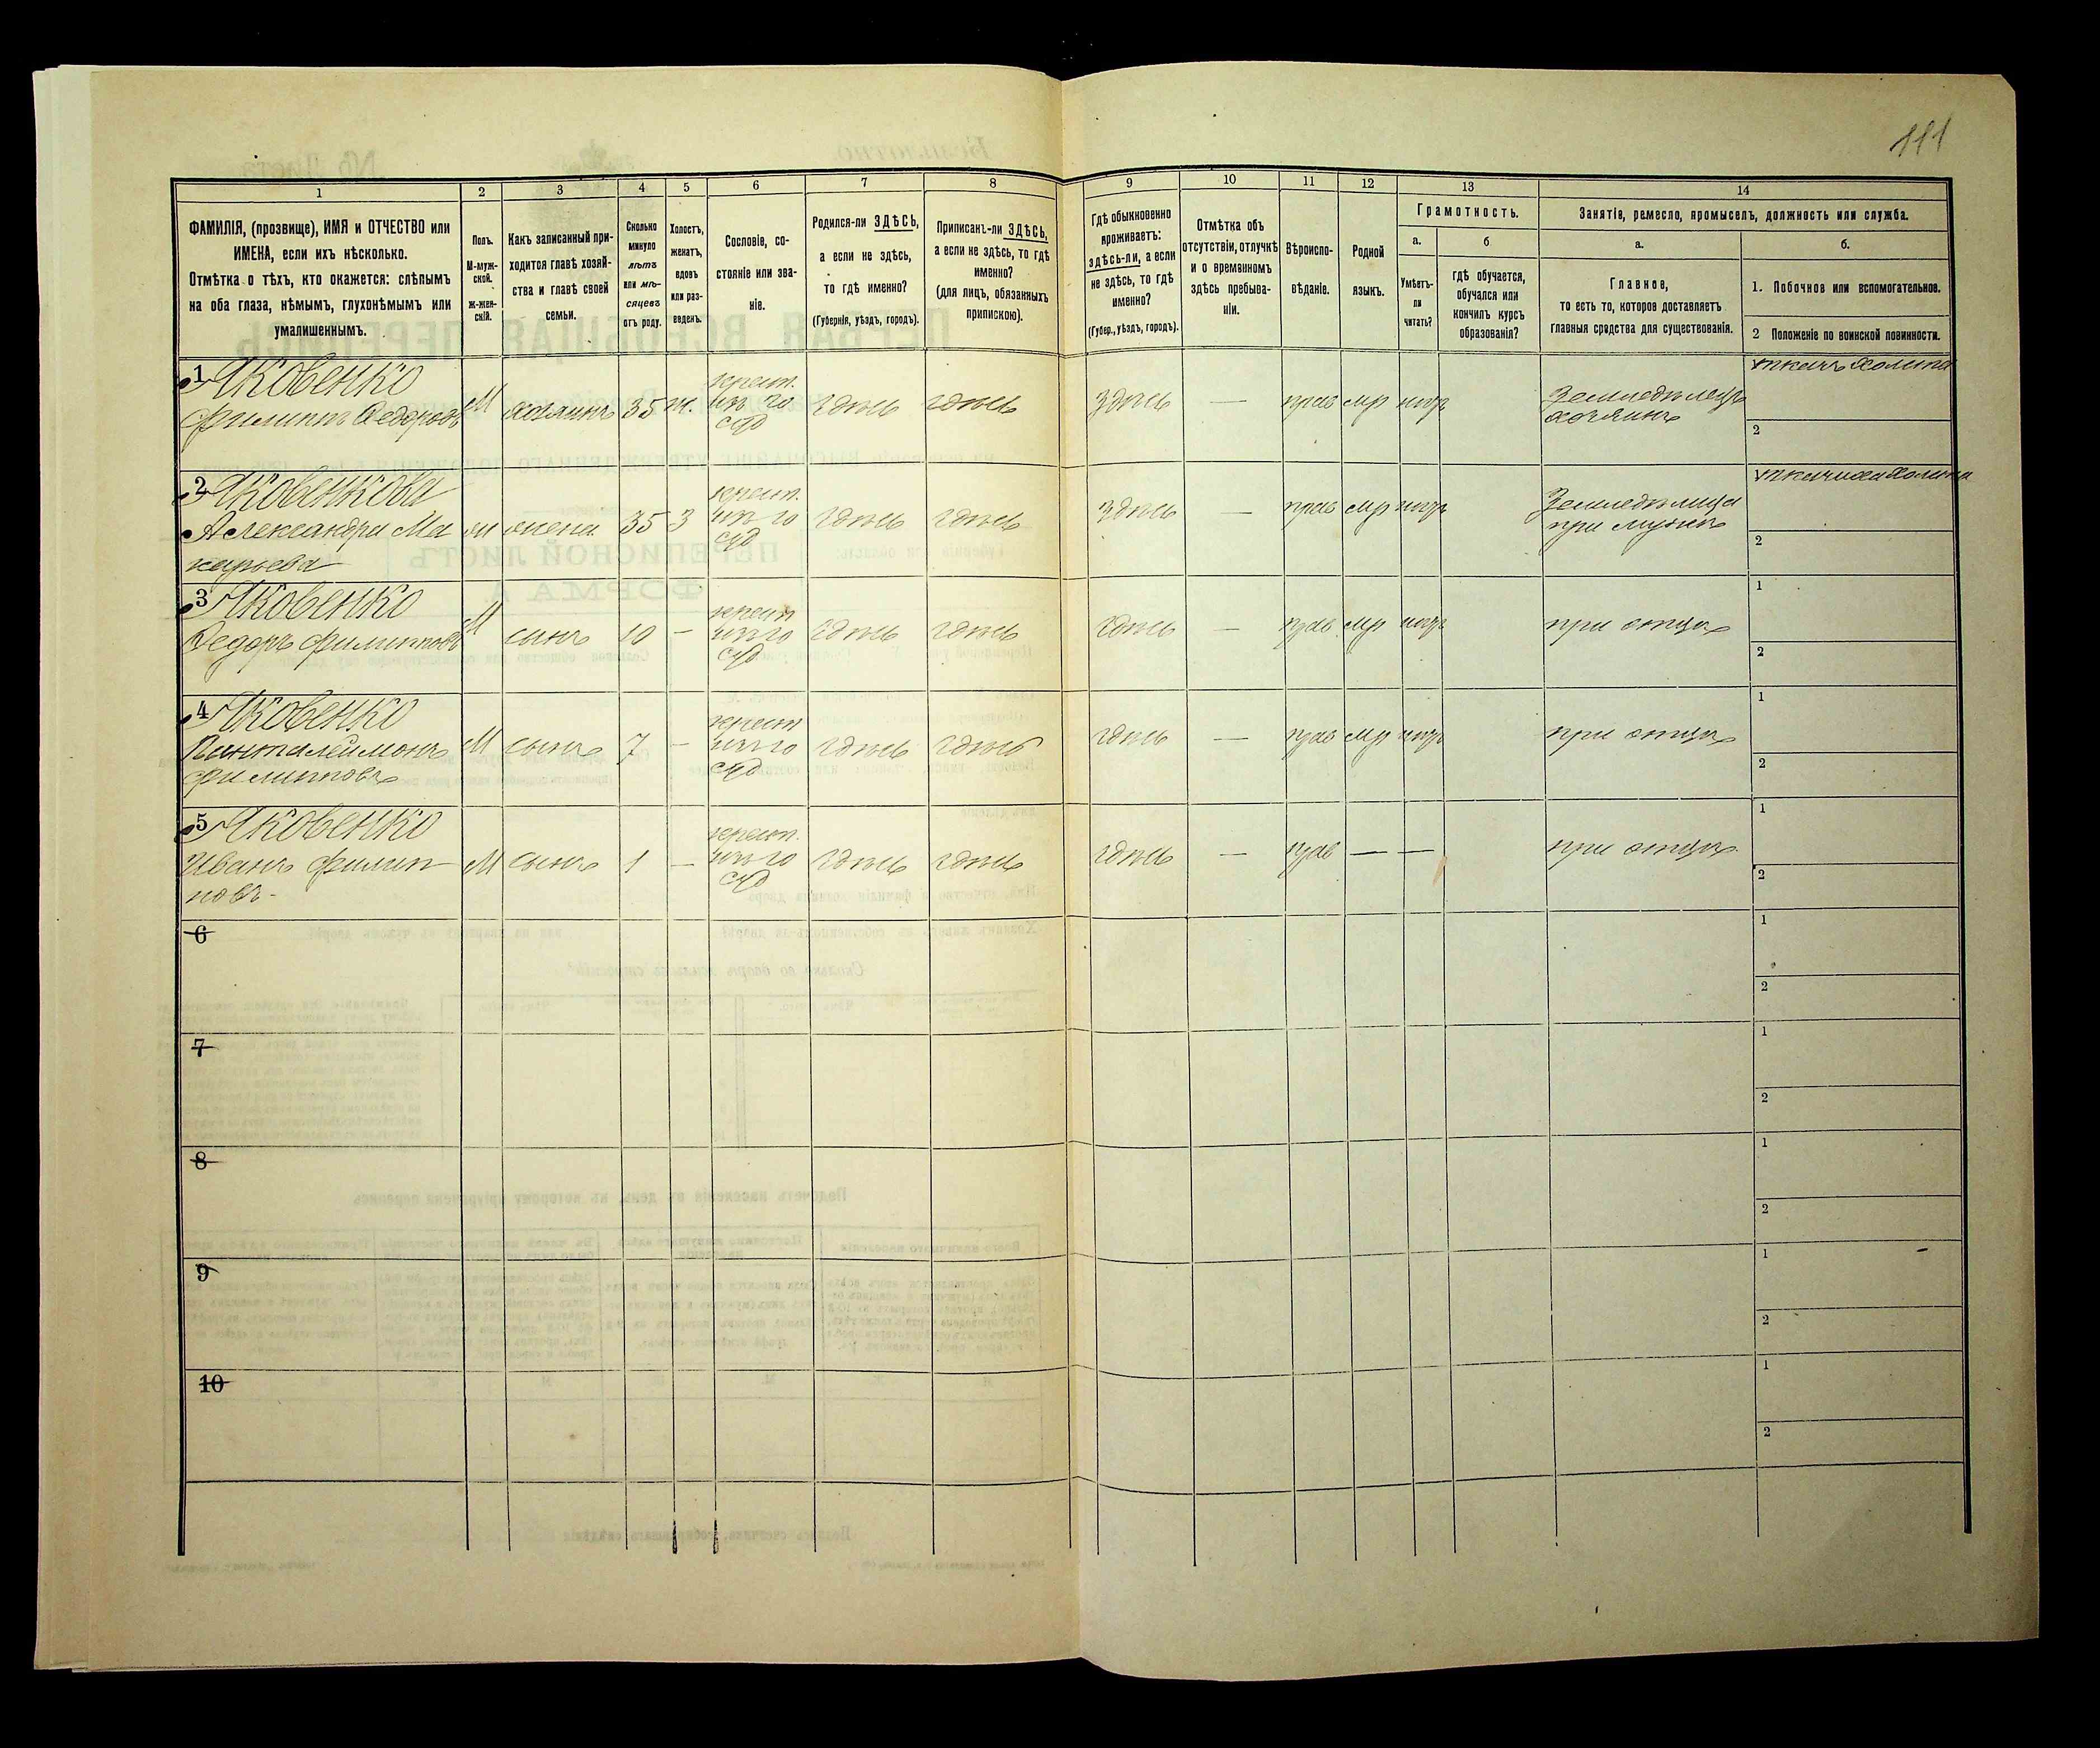 111
1 2 3 4 5 6 7 8 9 10 11 12 13 14
ФАМИЛІЯ, (прозвище), ИМЯ и ОТЧЕСТВО или
ИМЕНА, если ихъ нѣсколько.
Отмѣтка о тѣхъ, кто окажется: слѣпымъ
на оба глаза, нѣмымъ, глухонѣмымъ или
умалишеннымъ.
Полъ.
М-муж-
ской.
Ж-жен-
скій.
Какъ записанный при-
ходится главѣ хозяй-
ства и главѣ своей
семьи.
Сколько
минуло
лѣтъ
или мѣ-
сяцевъ
отъ роду.
Холостъ,
женатъ,
вдовъ
или раз-
веденъ.
Сословіе, со-
стояніе или зва-
ніе.
Родился-ли ЗДѢСЬ,
а если не здѣсь,
то гдѣ именно?
(Губернія, уѣздъ, городъ).
Приписанъ-ли ЗДѢСЬ,
а если не здѣсь, то гдѣ
именно?
(для лицъ, обязанныхъ
припискою).
Гдѣ обыкновенно
проживаетъ:
здѣсь-ли, а если
не здѣсь, то гдѣ
именно?
(Губер., уѣздъ, городъ).
Отмѣтка объ
отсутствіи, отлучкѣ
и о временномъ
здѣсь пребыва-
ніи.
Вѣроиспо-
вѣданіе.
Родной
языкъ.
Грамотность.
а.
Умѣетъ-
ли
читать?
б
гдѣ обучается,
обучался или
кончилъ курсъ
образованія?
Занятіе, ремесло, промыселъ, должность или служба.
а.
Главное,
то есть то, которое доставляетъ
главныя средства для существованія.
б.
1. Побочное или вспомогательное.
2 Положеніе по воинской повинности.
1 Яковенко
Филиппъ Федоровъ
М хозяинъ 35 ж. крест. здѣсь здѣсь здѣсь — прав мр
Земледѣлецъ
хозяинъ
ткачъ холста
2
2 Яковенкова
Александра Ма
карьева
ж жена 35 З крест. здѣсь здѣсь здѣсь — прав мр
Земледѣлица
при мужѣ
ткачиха холста
2
3 Яковенко
Федоръ Филипповъ
М сынъ 10 — крест здѣсь здѣсь здѣсь — прав мр
при отцѣ
1
2
4 Яковенко
Пантелеймонъ
Филипповъ
М сынъ 7 — крест здѣсь здѣсь здѣсь — прав мр
при отцѣ
1
2
5 Яковенко
Иванъ Филип
повъ-
М сынъ 1 — крест. здѣсь здѣсь здѣсь — прав — —
при отцѣ
1
2
6
1
2
7
1
2
8
1
2
9
1
2
10
1
2